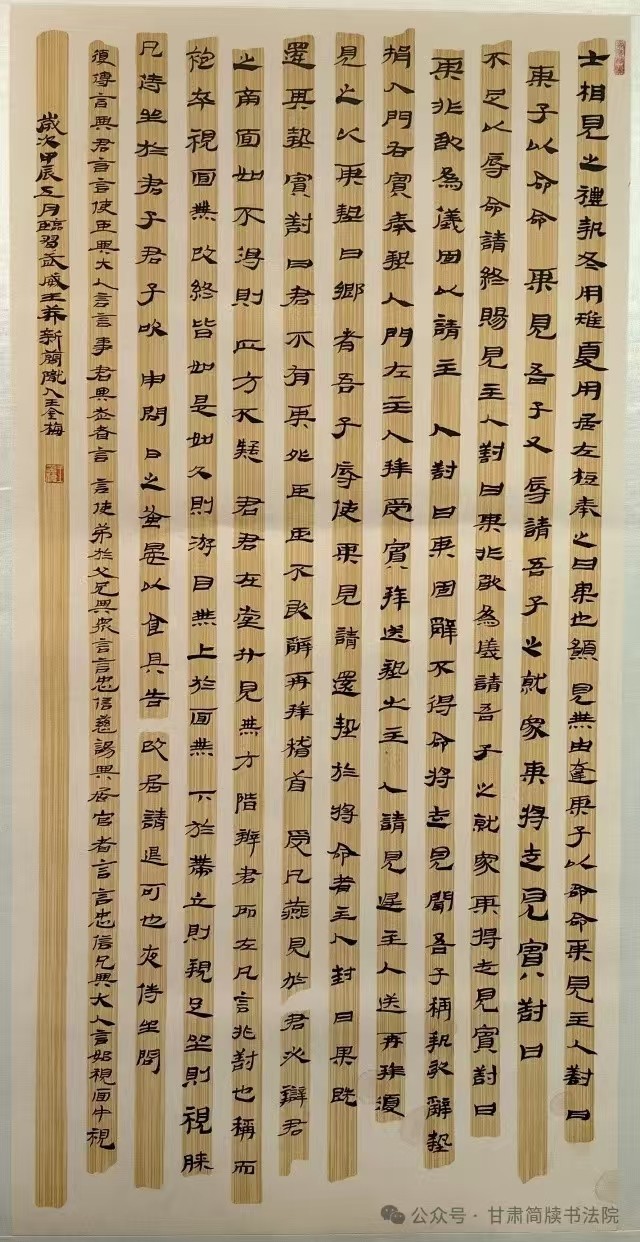 士相見之禮執冬用雉夏用居左梪奉之曰某也願見無由達某子以命命某見主人對曰
某子以命命某見吾子又辱請吾子之就家某將走見賓對曰
不足以辱命請終賜見主人對曰某非敢為儀請吾子之就家某得走見賓對曰
某非敢為儀固以請主人對曰某固辭不得命將走見聞吾子稱執敢辭摯
揖入門右賓奉摯入門左主人拜受賓拜送摯出主人請見主人送再拜復
見之以其摯曰鄉者吾子辱使某見請還摯於將命者主人對曰某既
還其摯賓對曰君不有其外臣臣不敢辭再拜稽首受凡燕見於君必辯君
之南面如不得則正方不疑君君在堂升見無方階辯君所在凡言非對也稱而
袍卒視面無改終皆如是如父則游目無上於面無下於帶立則視足坐則視膝
凡侍坐於君子君子吹申問日之蚤晏以食具告改居請退可也夜侍坐問
復傳言與君言言使臣與大人言言事君與老者言言使弟於父兄與衆言言忠信慈諹與居官者言言忠信凡與大人言始視面中視
歲次甲辰五月臨習武威王莽新簡隴人王金梅
公众号·甘肃简牍书法院